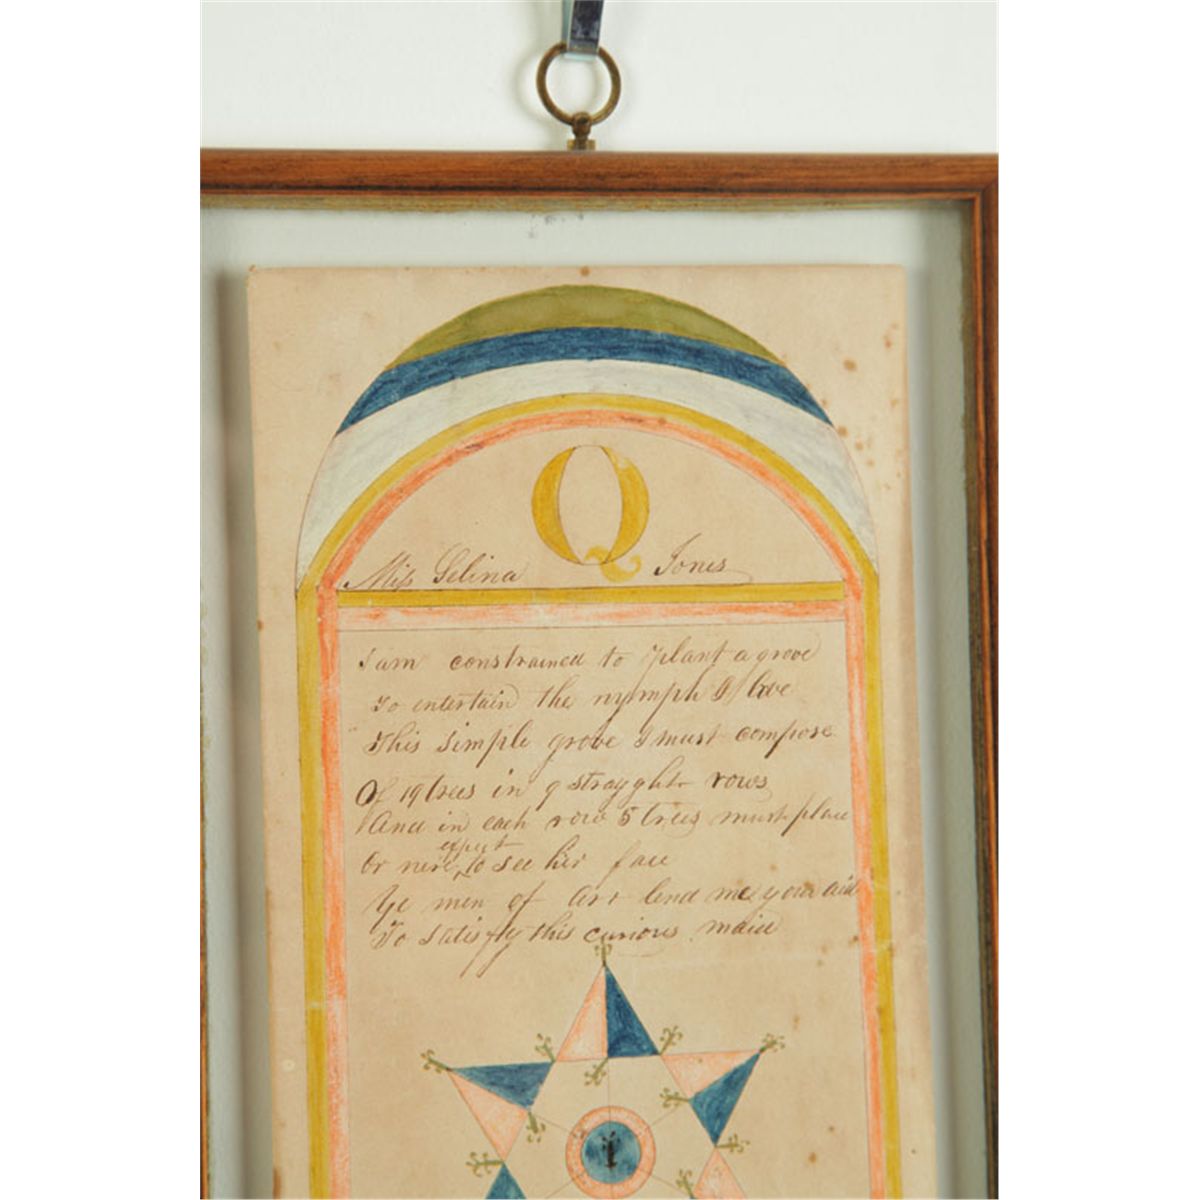 Q
Miss Selina Jones
I am constrained to plant a grove
To entertain the nymph I love
This simple grove I must compose
Of 19 trees in 9 strayght rows
And in each row 5 trees must place
Or nere expect to see her face
Ye men of Art lend me your aid
To satisfy this curious maid